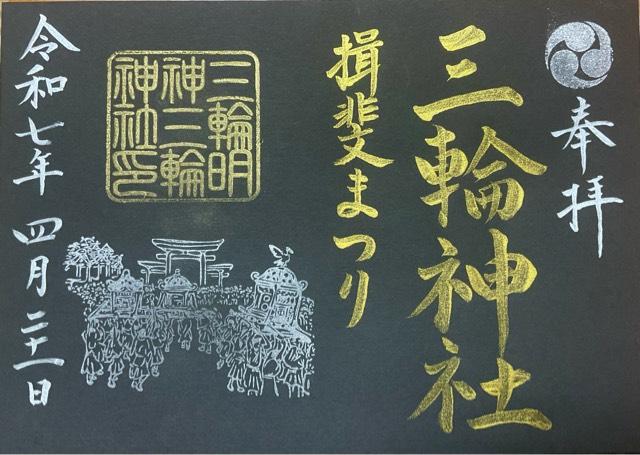 奉拝
三輪神社
揖斐まつり
三輪明
神三輪
神社印
令和七年 四月二十一日